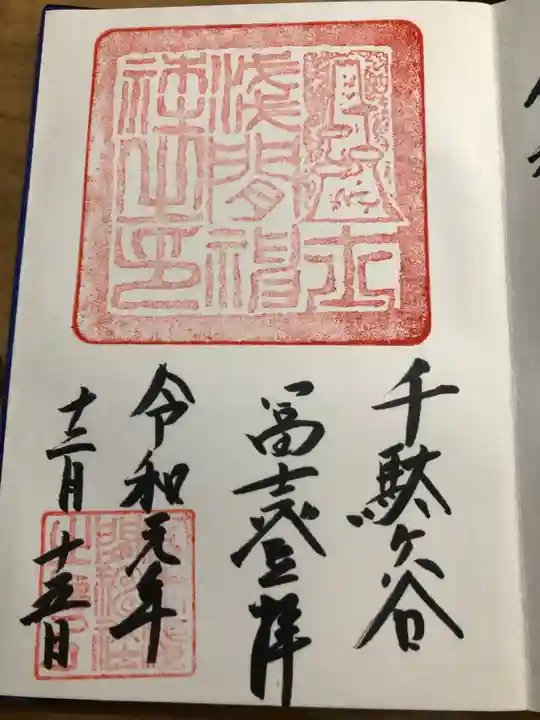 冨士
浅間神
社之印
千駄ヶ谷
冨士登拝
令和元年
十二月十五日